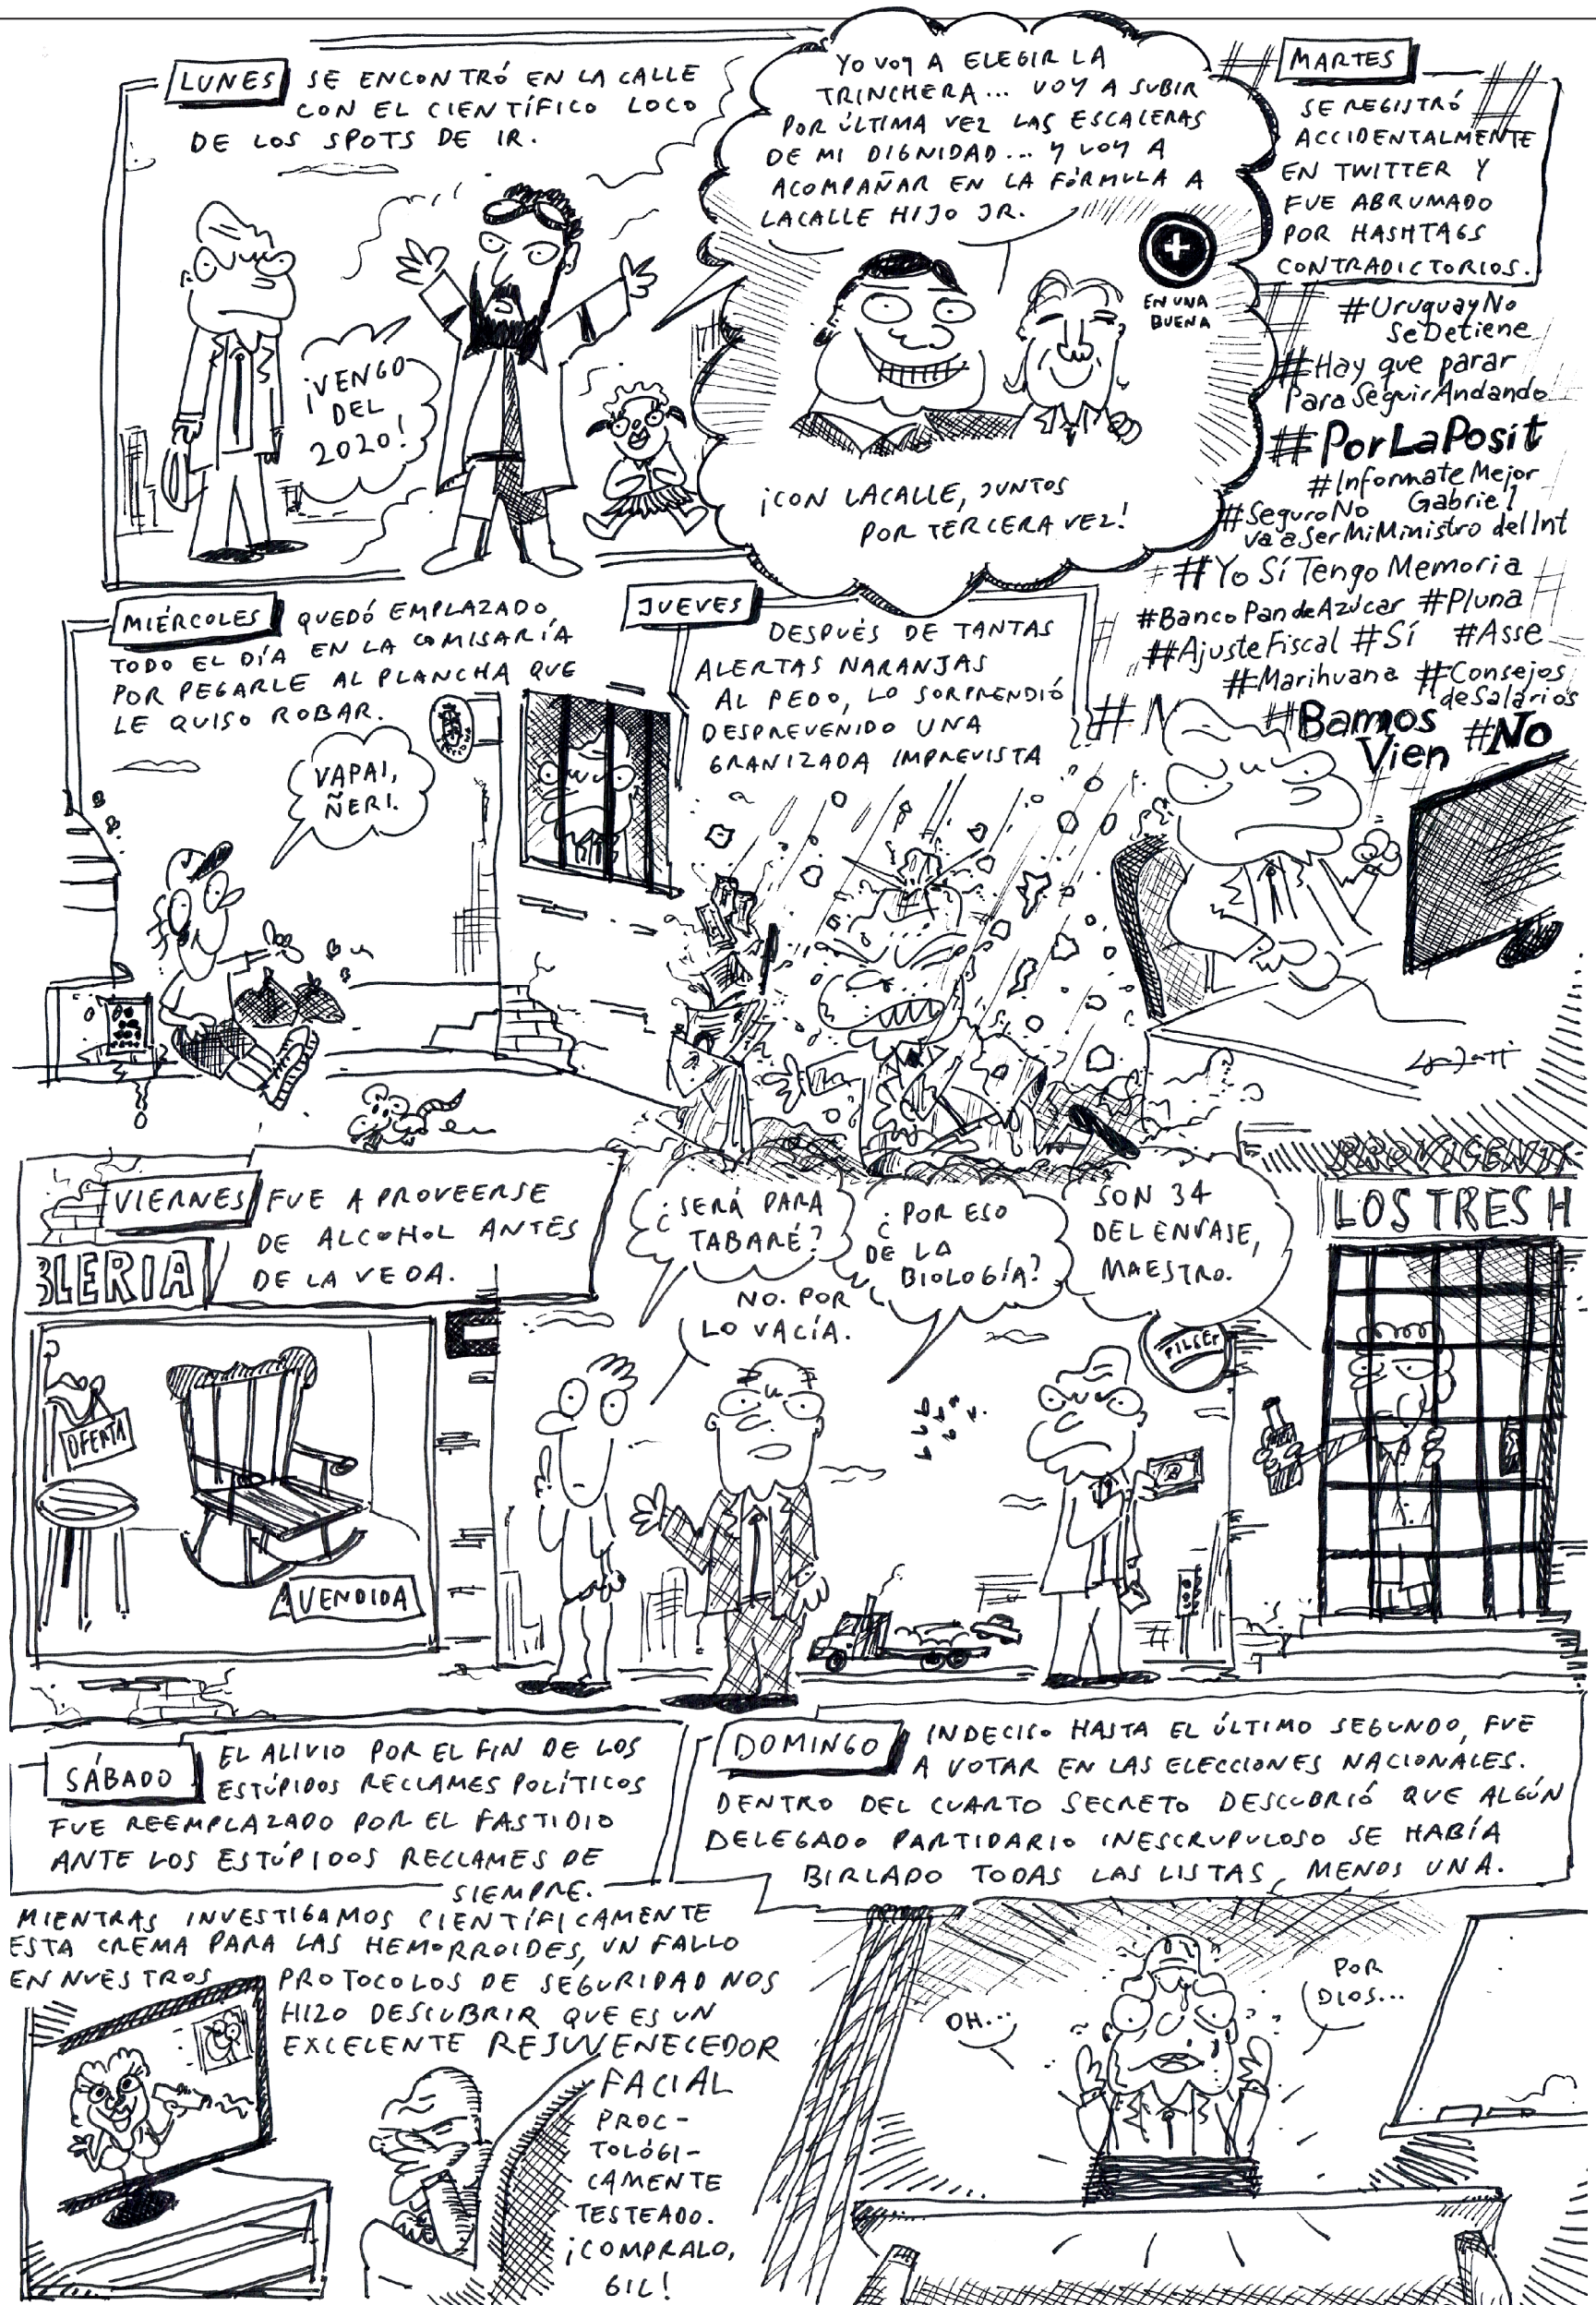 LUNES
SE ENCONTRÓ EN LA CALLE
CON EL CIENTÍFICO LOCO
DE LOS SPOTS DE IR.
¡VENGO
DEL
2020!
YO VOY A ELEGIR LA
TRINCHERA... VOY A SUBIR
POR ÚLTIMA VEZ LAS ESCALERAS
DE MI DIGNIDAD... Y VOY A
ACOMPAÑAR EN LA FÓRMULA A
LACALLE HIJO JR.
+
EN UNA
BUENA
¡CON LACALLE, JUNTOS
POR TERCERA VEZ!
MARTES
SE REGISTRÓ
ACCIDENTALMENTE
EN TWITTER Y
FUE ABRUMADO
POR HASHTAGS
CONTRADICTORIOS.
#UruguayNo
SeDetiene
#Hay que parar
ParaSeguirAndando
#PorLaPosit
#InformateMejor
Gabriel
#SeguroNo
va a SerMiMinistro del Int
#YoSíTengoMemoria
#BancoPandeAzúcar #Pluna
#AjusteFiscal #Sí #Asse
#Marihuana #Consejos
deSalarios
#Bamos
Vien
#No
MIÉRCOLES
QUEDÓ EMPLAZADO
TODO EL DÍA EN LA COMISARÍA
POR PEGARLE AL PLANCHA QUE
LE QUISO ROBAR.
VAPAI,
ÑERI.
JUEVES
DESPUÉS DE TANTAS
ALERTAS NARANJAS
AL PEDO, LO SORPRENDIÓ
DESPREVENIDO UNA
GRANIZADA IMPREVISTA
VIERNES
FUE A PROVEERSE
DE ALCOHOL ANTES
DE LA VEDA.
BLERIA
OFERTA
VENDIDA
¿SERÁ PARA
TABARÉ?
NO. POR
LO VACÍA.
¿POR ESO
DE LA
BIOLOGÍA?
SON 34
DEL ENVASE,
MAESTRO.
LOS TRES H
PILSEN
SÁBADO
EL ALIVIO POR EL FIN DE LOS
ESTÚPIDOS RECLAMES POLÍTICOS
FUE REEMPLAZADO POR EL FASTIDIO
ANTE LOS ESTÚPIDOS RECLAMES DE
SIEMPRE.
MIENTRAS INVESTIGAMOS CIENTÍFICAMENTE
ESTA CREMA PARA LAS HEMORROIDES, UN FALLO
EN NUESTROS PROTOCOLOS DE SEGURIDAD NOS
HIZO DESCUBRIR QUE ES UN
EXCELENTE REJUVENECEDOR
FACIAL
PROC-
TOLÓGI-
CAMENTE
TESTEADO.
¡COMPRALO,
GIL!
DOMINGO
INDECISO HASTA EL ÚLTIMO SEGUNDO, FUE
A VOTAR EN LAS ELECCIONES NACIONALES.
DENTRO DEL CUARTO SECRETO DESCUBRIÓ QUE ALGÚN
DELEGADO PARTIDARIO INESCRUPULOSO SE HABÍA
BIRLADO TODAS LAS LISTAS, MENOS UNA.
OH...
POR
DIOS...